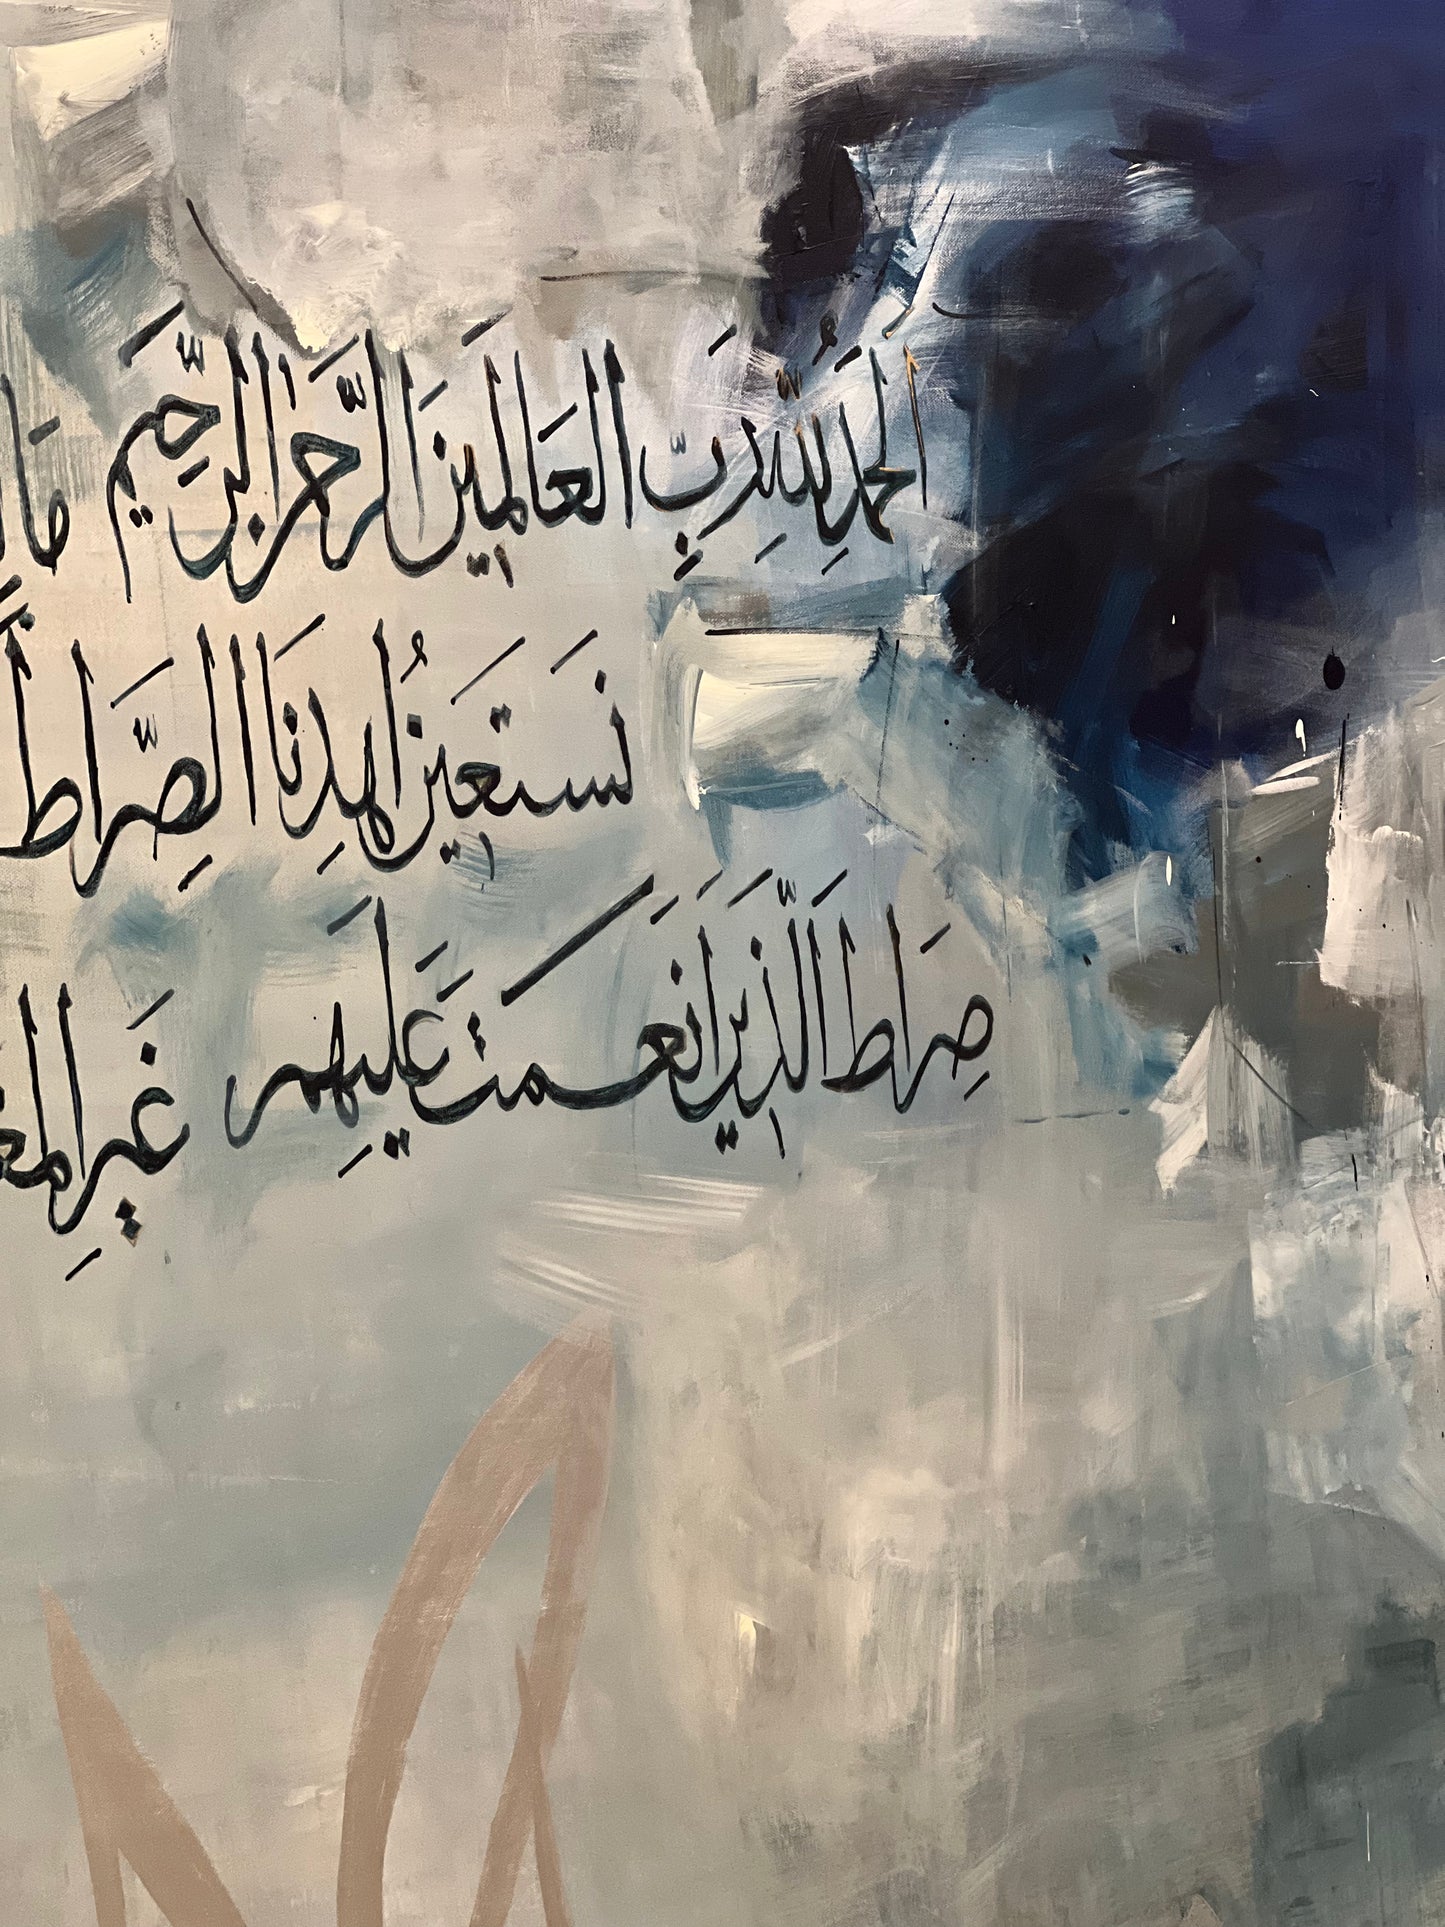 الْحَمْدُ لِلَّهِ رَبِّ الْعَالَمِينَ الرَّحْمَٰنِ الرَّحِيمِ
نَسْتَعِينُ اهْدِنَا الصِّرَاطَ
صِرَاطَ الَّذِينَ أَنْعَمْتَ عَلَيْهِمْ غَيْرِ